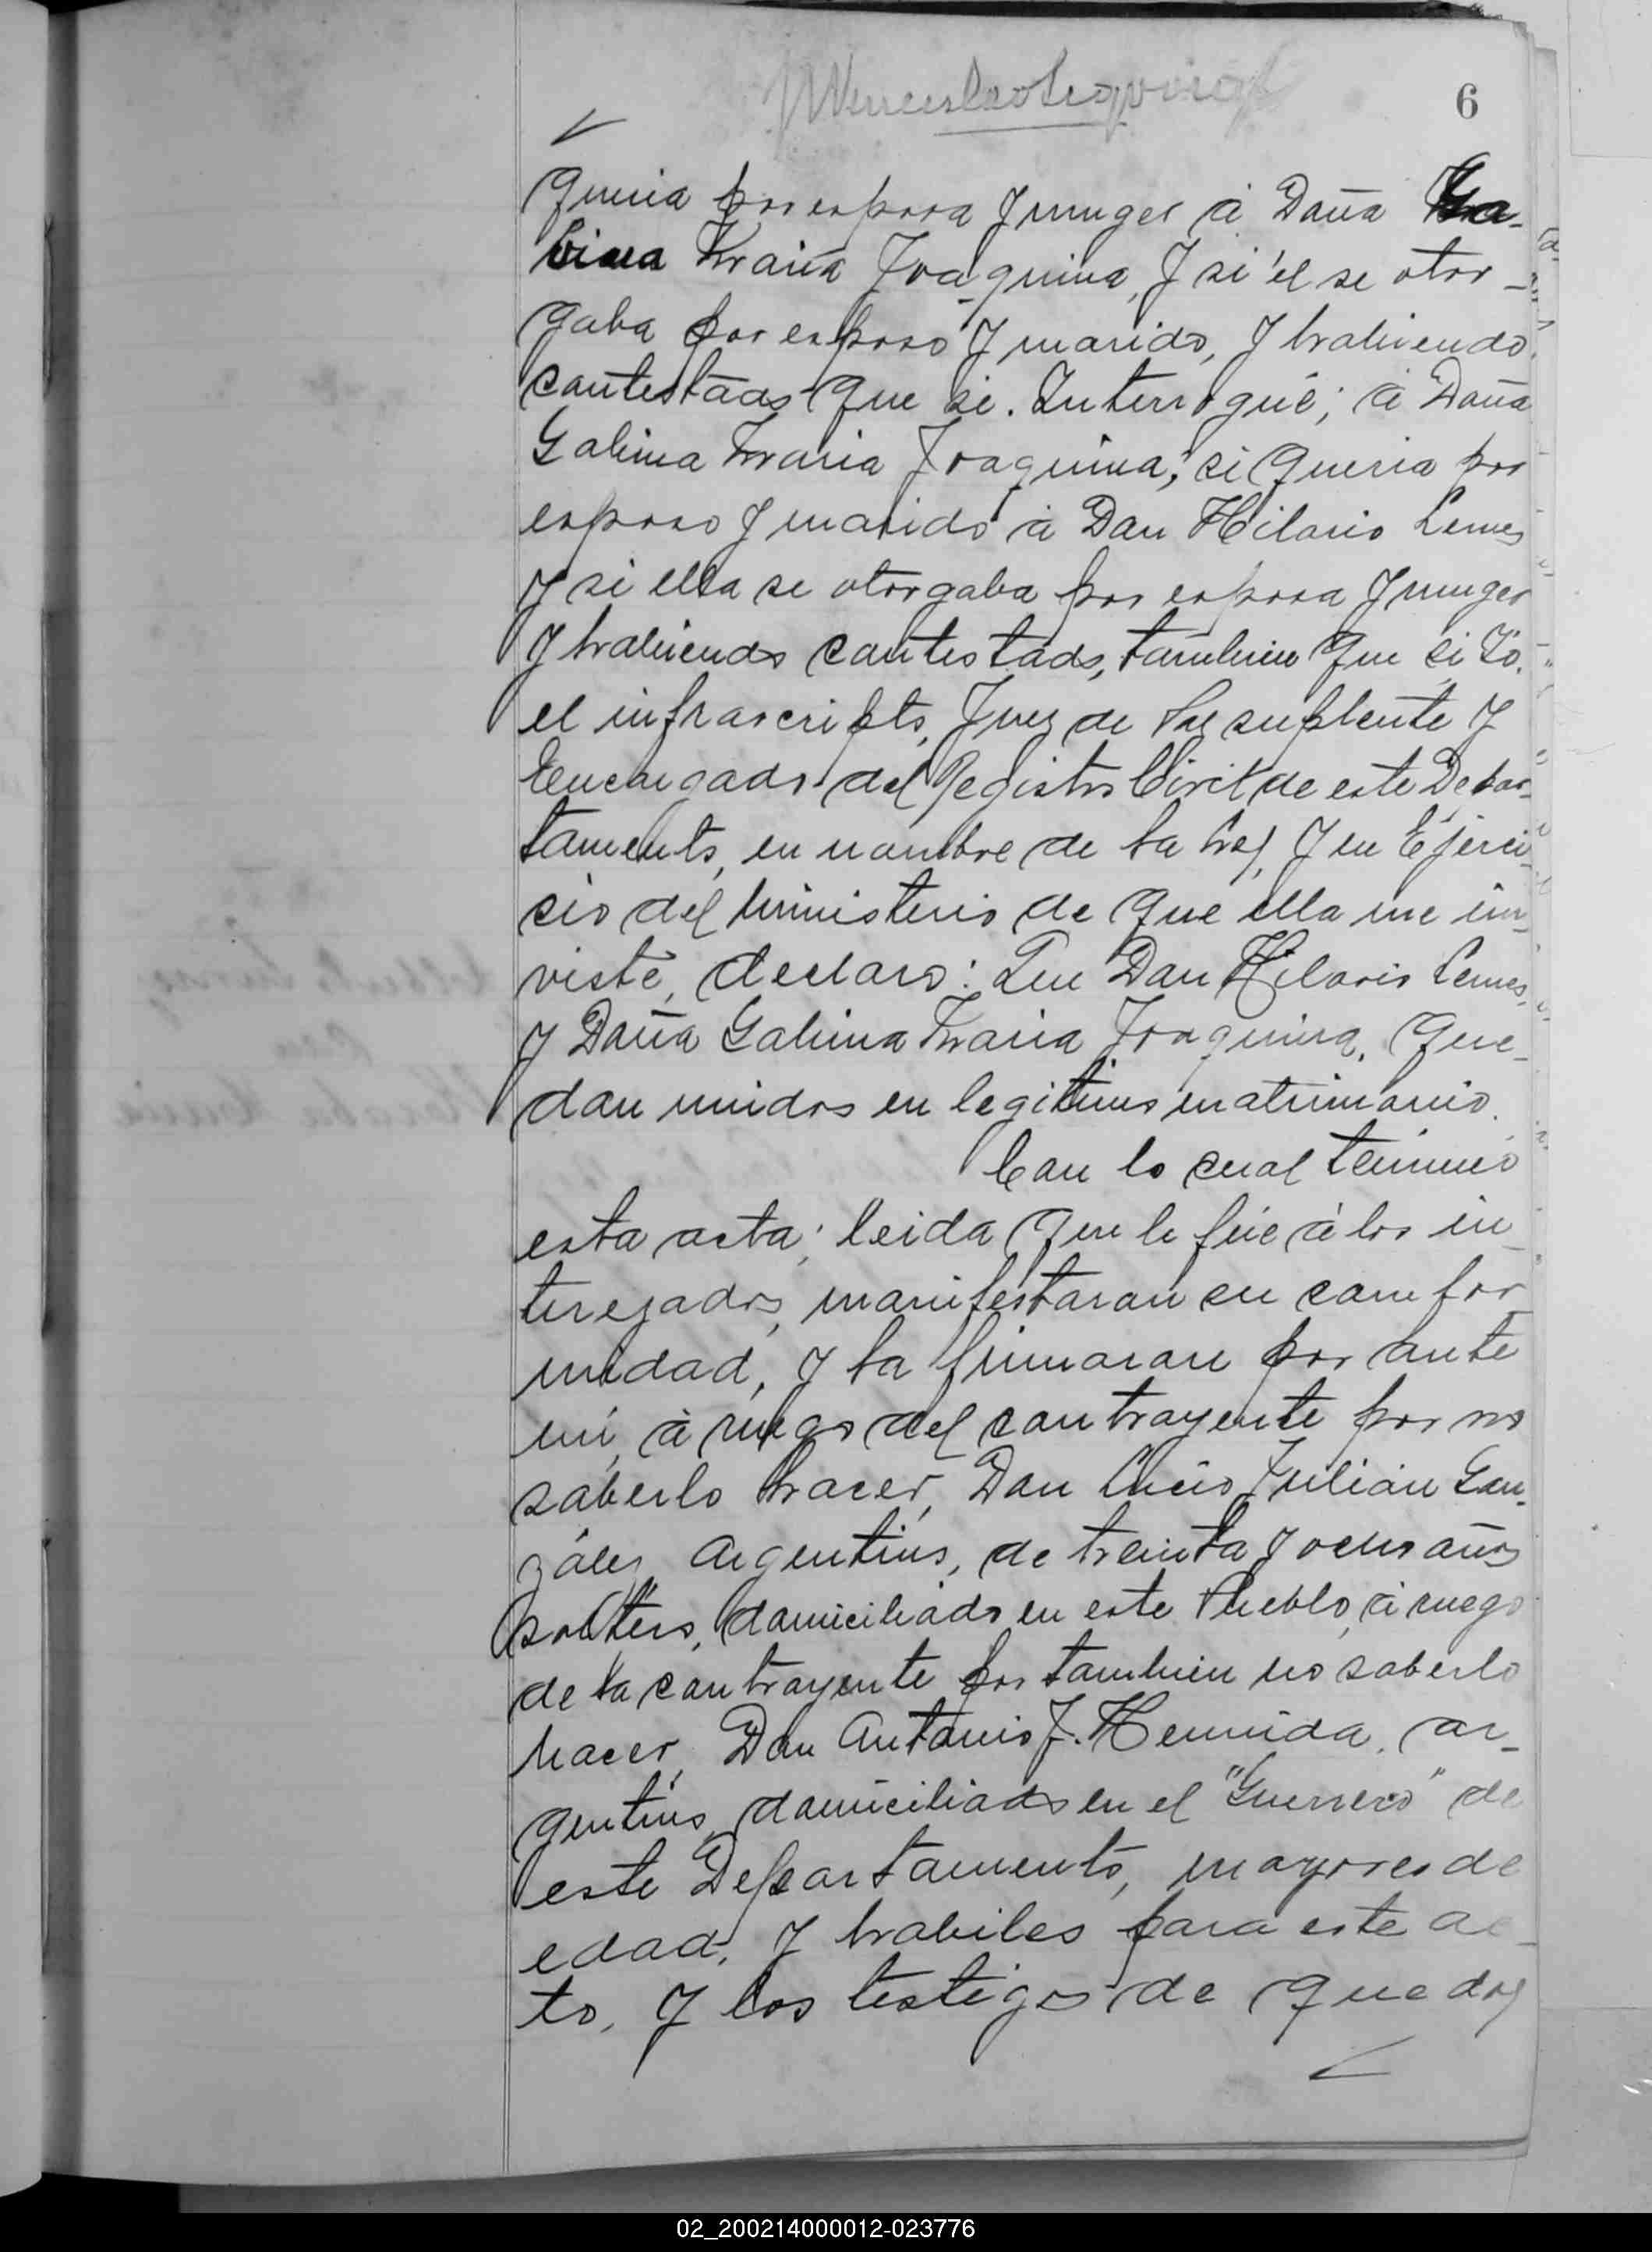 6
queria por esposa y muger á Doña Ga-
bina Maria Joaquina, y si él se otor-
gaba por esposo y marido, y habiendo
contestado que si. Interrogué; á Doña
Gabina Maria Joaquina, si queria por
esposo y marido á Don Hilario Lemes
y si ella se otorgaba por esposa y muger
y habiendo contestado, tambien que si Yo.
el infrascripto, Juez de Paz suplente y
Encargado del Registro Civil de este Depar-
tamento, en nombre de la Ley, y en Ejerci-
cio del ministerio de que ella me in-
viste, declaro: Que Don Hilario Lemes,
y Doña Gabina Maria Joaquina, que-
dan unidos en legitimo matrimonio.
Con lo cual terminó
esta acta; leida que le fué á los in-
terezados, manifestaron su confor
midad, y la firmaron por ante
mi, á ruego del contrayente por no
saberlo hacer, Don Lucio Julián Gon-
zález, Argentino, de treinta y ocho años
soltero, domiciliado en este Pueblo, á ruego
de la contrayente por tambien no saberlo
hacer, Don Antonio J. Hermida, ar-
gentino, domiciliado en el "Guerrero" de
este Departamento, mayores de
edad, y habiles para este ac-
to, y los testigos de que doy
02_200214000012-023776